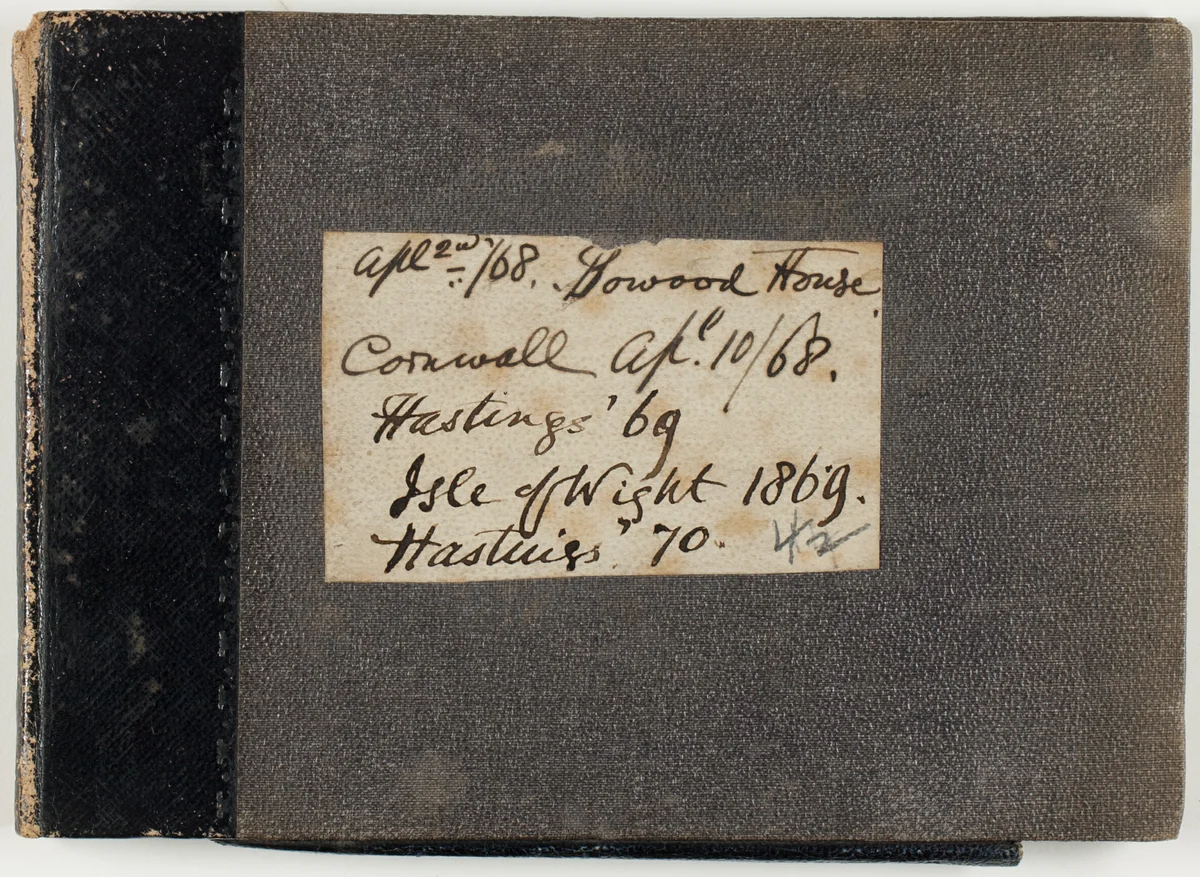 Apl 2nd /68. Bowood House.
Cornwall Apl. 10/68.
Hastings '69
Isle of Wight 1869.
Hastings" 70.
42